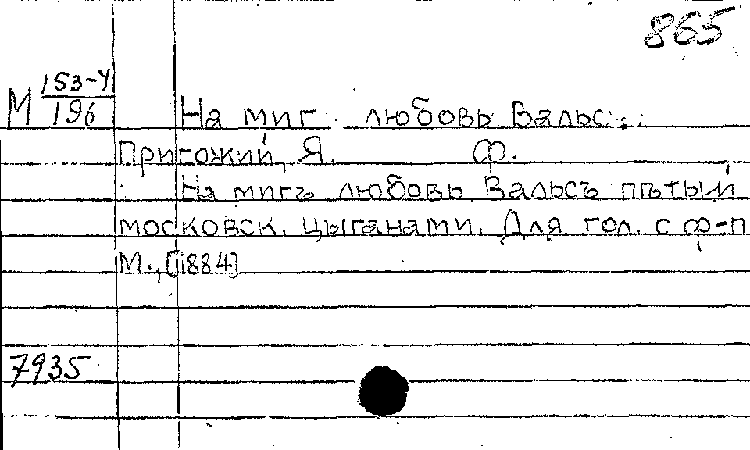 865
М 153-4/196
На миг любовь Вальс...
Пригожий, Я. Ф.
На мигъ любовь Вальсъ пѣтый
московск. цыганами. Для гол. с ф-п
М., [1884]
7935